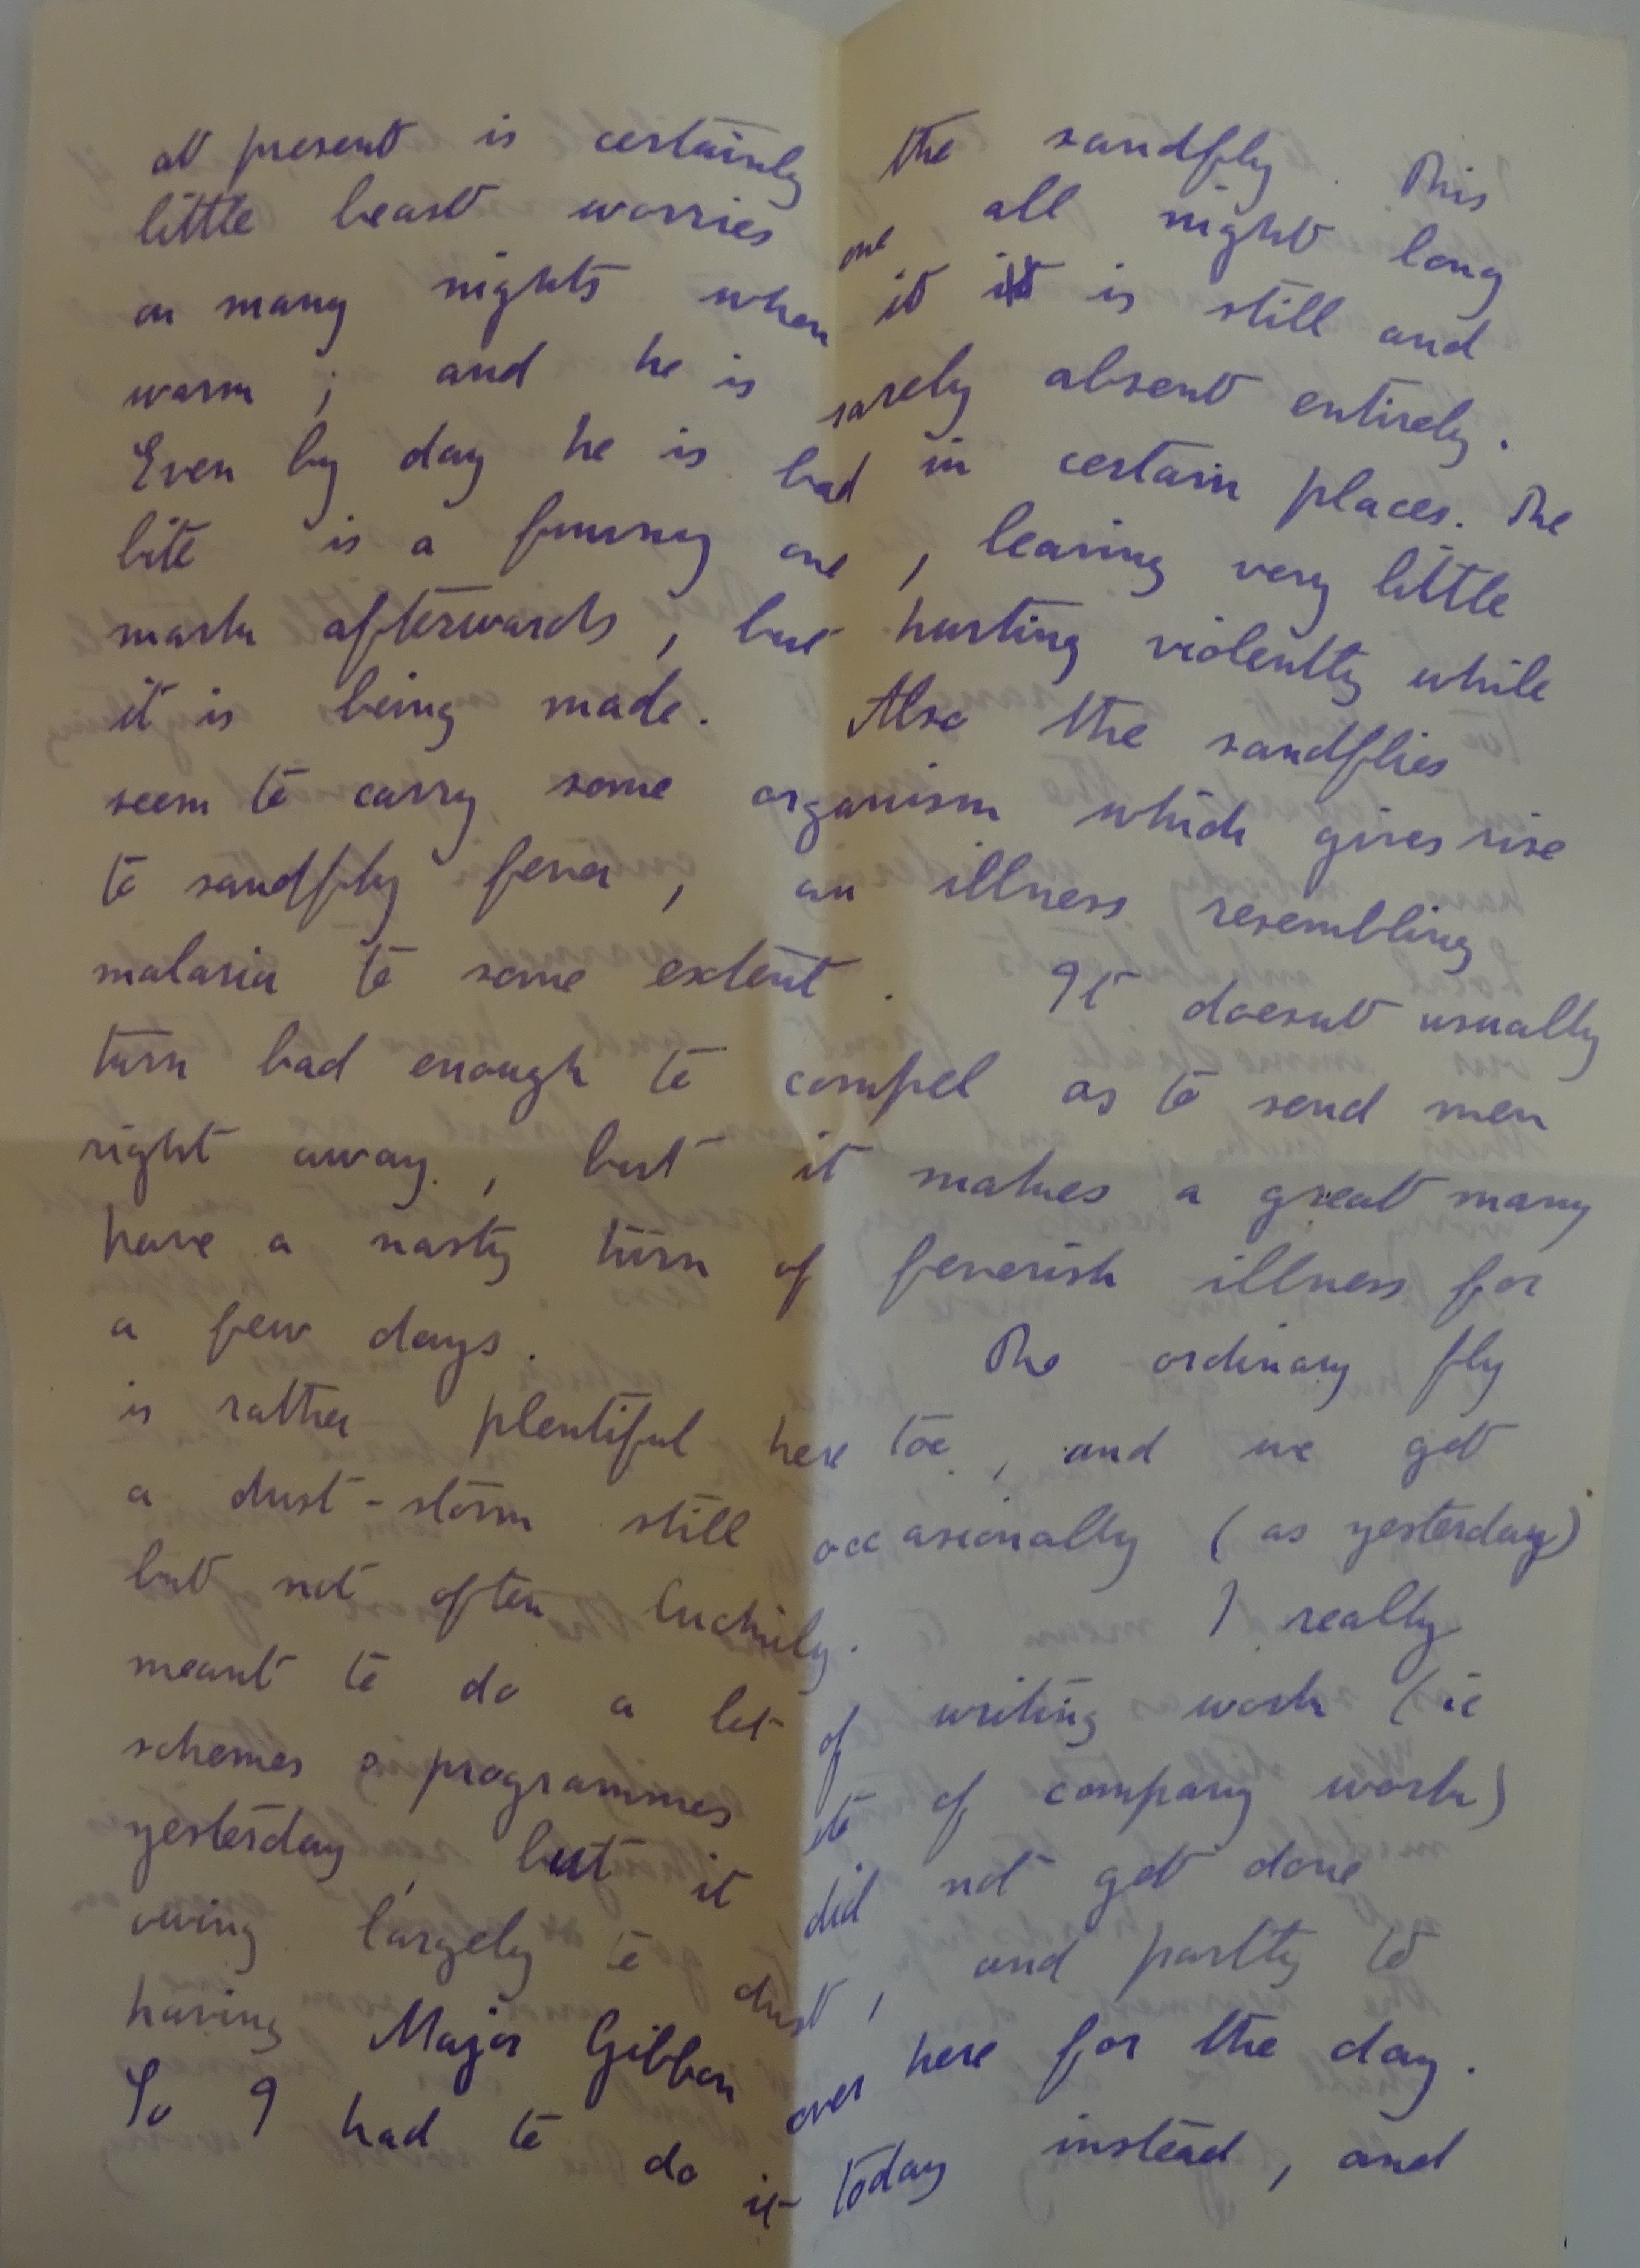 at present is certainly the sandfly. This
little beast worries one all night long
on many nights when it is still and
warm; and he is rarely absent entirely.
Even by day he is bad in certain places. The
bite is a funny one, leaving very little
mark afterwards, but hurting violently while
it is being made. Also the sandflies
seem to carry some organism which gives rise
to sandfly fever, an illness resembling
malaria to some extent. It doesnt usually
turn bad enough to compel as to send men
right away, but it makes a great many
have a nasty turn of feverish illness for
a few days. The ordinary fly
is rather plentiful here too, and we get
a dust-storm still occasionally (as yesterday)
but not often luckily. I really
meant to do a lot of writing work (ie
schemes & programmes etc of company work)
yesterday, but it did not get done
owing largely to dust, and partly to
having Major Gibbon over here for the day.
So I had to do it today instead, and